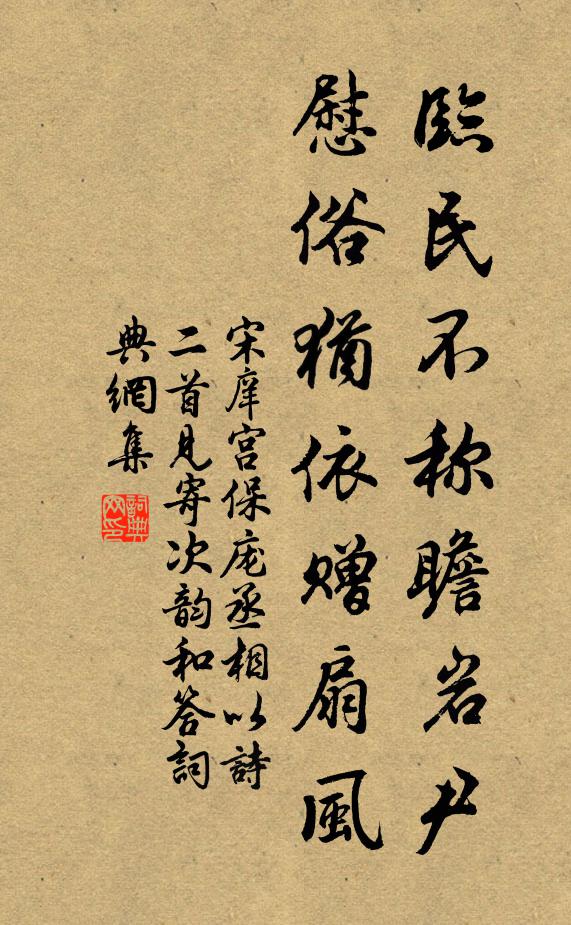 臨民不称瞻岩尹
慰俗猶依贈扇風
宋庠宫保庞丞相以詩
二首見寄次韵和答詞
典網集
詞典网印